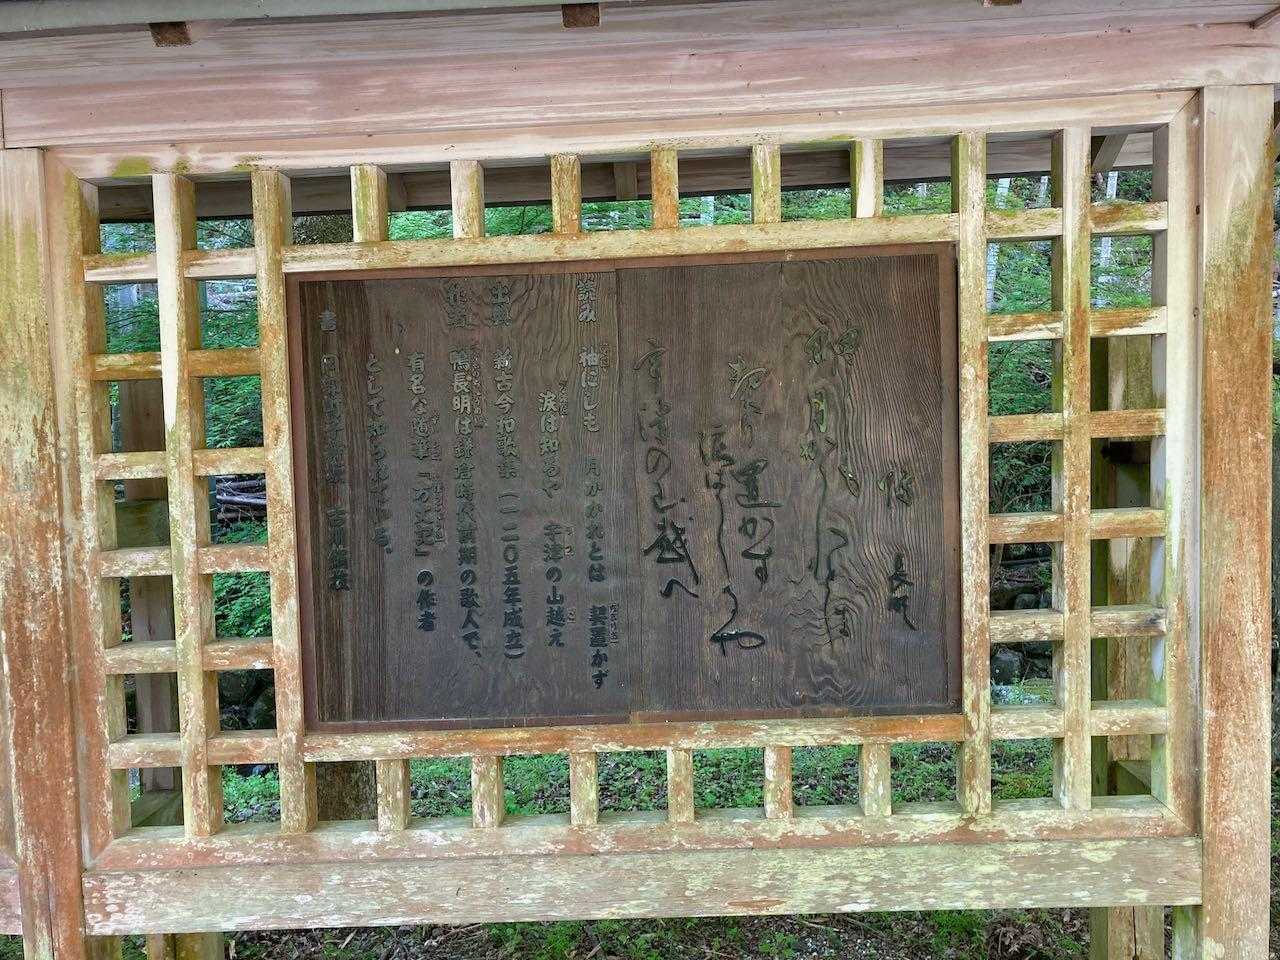 長明
袖にしも 月かかれとは
契置かず
涙は知るや
宇津の山越へ
読み 袖にしも 月かかれとは 契置かず
涙は知るや 宇津の山越え
出典 新古今和歌集(一二〇五年成立)
作者 鴨長明は鎌倉時代前期の歌人で、
有名な随筆「方丈記」の作者
として知られている。
書